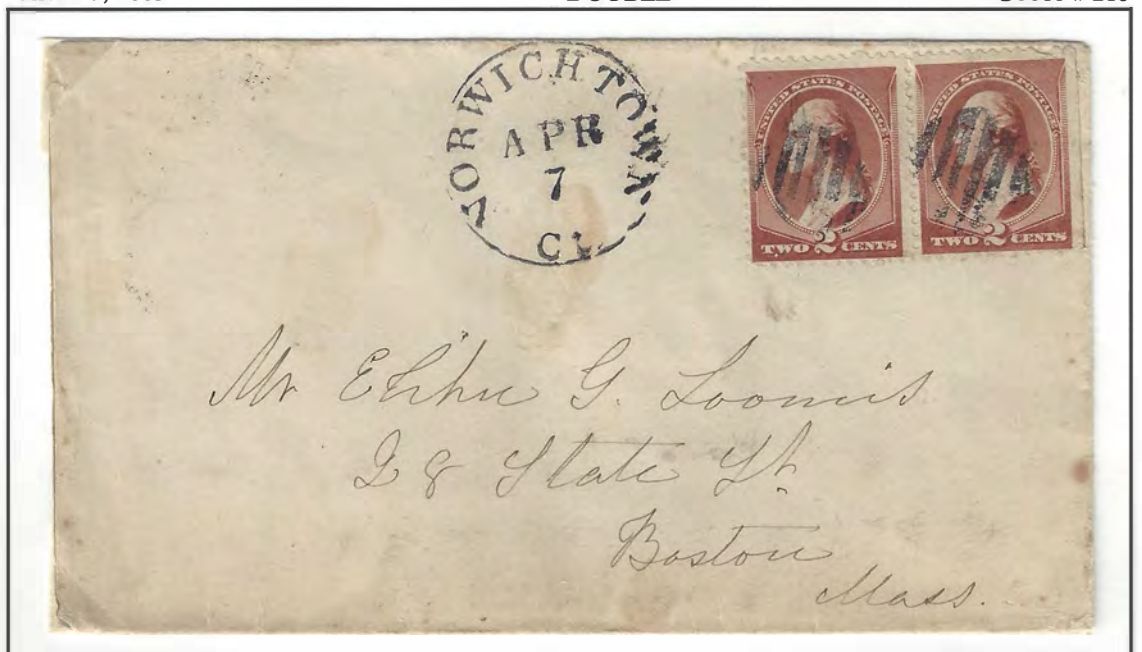 NORWICH TOWN
APR
7
CT.
UNITED STATES POSTAGE
TWO 2 CENTS
UNITED STATES POSTAGE
TWO 2 CENTS
Mr Elihu G. Loomis
28 State St.
Boston
Mass.